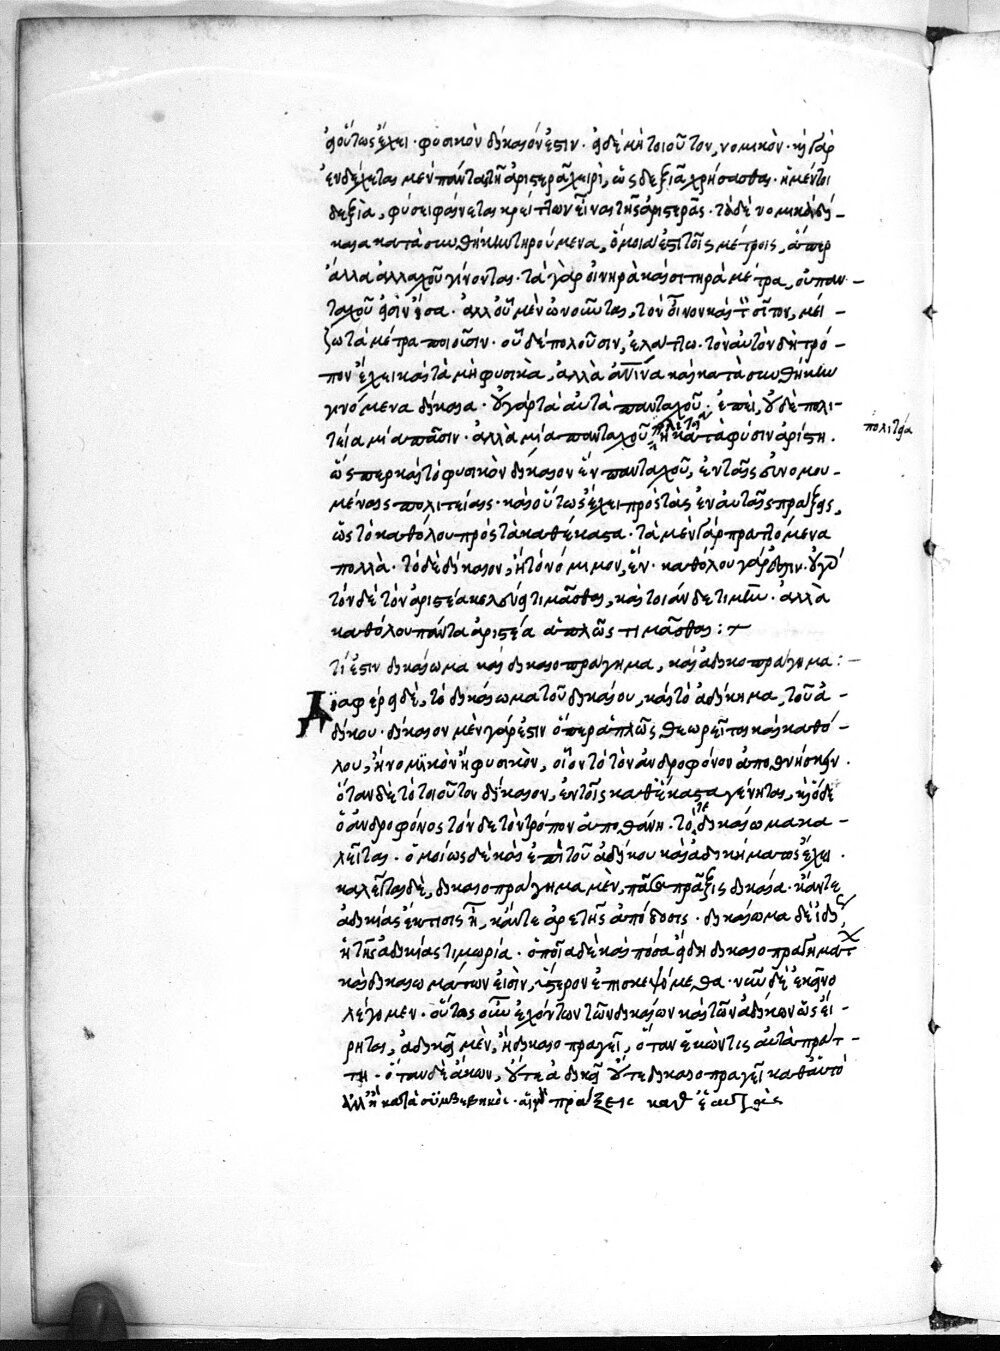 οὕτως ἔχει· φυσικὸν δίκαιόν ἐστιν· εἰ δὲ μὴ τοιοῦτον, νομικὸν· καὶ γὰρ
ἐνδέχεται μὲν πάντας τῇ ἀριστερᾷ χειρὶ, ὡς δεξιᾷ χρήσασθαι· ἡ μέντοι
δεξιὰ, φύσει φαίνεται κρείττων εἶναι τῆς ἀριστερᾶς· τὰ δὲ νομικὰ δί-
καια κατὰ συνθήκην τηρούμενα, ὅμοιά ἐστι τοῖς μέτροις, ἅπερ
ἄλλα ἀλλαχοῦ γίνονται· τὰ γὰρ οἰνηρὰ καὶ σιτηρὰ μέτρα, οὐ παν-
ταχοῦ εἰσὶν ἴσα· ἀλλ' οὗ μὲν ὠνοῦνται, τὸν οἶνον καὶ τὸν σῖτον, μεί-
ζω τὰ μέτρα ποιοῦσιν· οὗ δὲ πωλοῦσιν, ἐλάττω· τὸν αὐτὸν δὴ τρό-
πον ἔχει καὶ τὰ μὴ φυσικὰ, ἀλλὰ ἀνθρώπινα καὶ κατὰ συνθήκην
γινόμενα δίκαια· οὐ γάρ τὰ αὐτὰ πανταχοῦ· ἐπεὶ, οὐδὲ πολι-
τεία μία πᾶσιν· ἀλλὰ μία πανταχοῦ πολιτεία ἡ κατὰ φύσιν ἀρίστη.
πολιτεία
ὥσπερ καὶ τὸ φυσικὸν δίκαιον ἓν πανταχοῦ, ἐν ταῖς εὐνομου-
μέναις πολιτείαις· καὶ οὕτως ἔχει πρὸς τὰς ἐν αὐταῖς πράξεις,
ὡς τὸ καθόλου πρὸς τὰ καθέκαστα· τὰ μὲν γὰρ πραττόμενα
πολλὰ· τὸ δὲ δίκαιον, ἢ τὸ νόμιμον, ἕν· καθόλου γάρ ἐστιν· οὐ γὰρ
τόνδε τὸν ἀριστέα κελεύει τιμᾶσθαι, καὶ τοιάνδε τιμὴν· ἀλλὰ
καθόλου πάντα ἀριστέα ἁπλῶς τιμᾶσθαι:
τί ἐστιν δικαίωμα καὶ δικαιοπράγημα, καὶ ἀδικοπράγημα:
Διαφέρει δὲ, τὸ δικαίωμα τοῦ δικαίου, καὶ τὸ ἀδίκημα, τοῦ ἀ-
δίκου· δίκαιον μὲν γάρ ἐστιν ὅπερ ἁπλῶς θεωρεῖται καὶ καθό-
λου, ἢ νομικὸν ἢ φυσικὸν, οἷον τὸ τὸν ἀνδροφόνον ἀποθνήσκειν.
ὅταν δὲ τὸ τοιοῦτον δίκαιον, ἐν τοῖς καθέκαστα γένηται, καὶ ὅδε
ὁ ἀνδροφόνος τόνδε τὸν τρόπον ἀποθάνῃ· τότε δικαίωμα κα-
λεῖται· ὁμοίως δὲ καὶ ἐπὶ τοῦ ἀδίκου καὶ ἀδικήματος ἔχει·
καλεῖται δὲ, δικαιοπράγημα μὲν, πᾶσα πρᾶξις δικαία· κἄν τε
ἀδικίας ἔκτισις ᾖ, κἄν τε ἀρετῆς ἀπόδοσις· δικαίωμα δὲ ἰδίως
ἡ τῆς ἀδικίας τιμωρία· ὁποῖα δὲ καὶ πόσα εἴδη δικαιοπραγημάτων
καὶ δικαιωμάτων εἰσὶν, ὕστερον ἐπισκεψόμεθα· νῦν δὲ ἐκεῖνο
λέγομεν· οὕτως οὖν ἐχόντων τῶν δικαίων καὶ τῶν ἀδίκων ὡς εἴ-
ρηται, ἀδικεῖ μὲν, ἢ δικαιοπραγεῖ, ὅταν ἑκών τις αὐτὰ πράτ-
τῃ· ὅταν δὲ ἄκων, οὔτε ἀδικεῖ οὔτε δικαιοπραγεῖ καθ' αὑτὸ
ἀλλ' ἢ κατὰ συμβεβηκός· πράξεις καθ' ἑαυτὰς